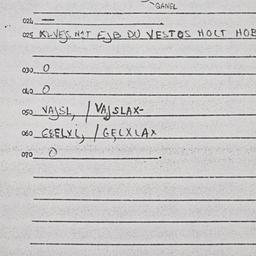 GANGL
024 —
025 KLVEJS NOT EJB DU VESTOS HOLT HOB
030 0
040 0
050 VAJSL, / VAJSLAX-
060 GEELXL, / GELXLAX
070 0